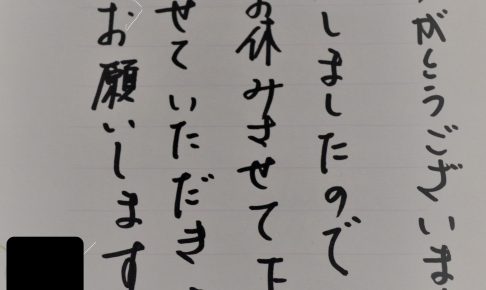 がとうございま
しましたので
お休みさせて下
せていただき
お願いします